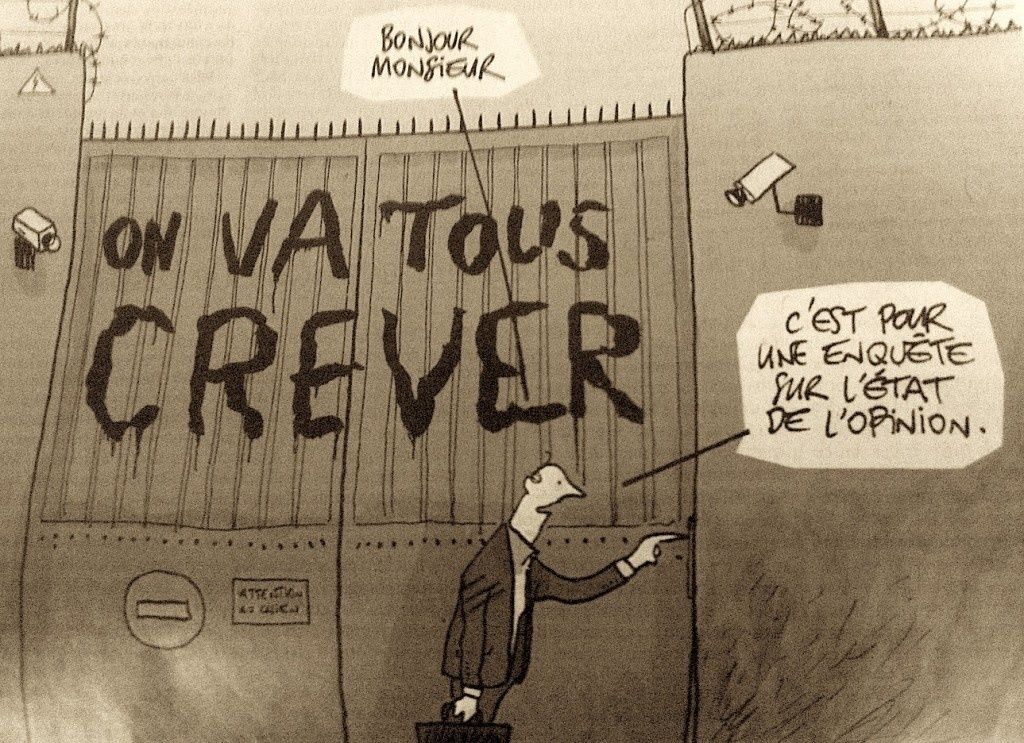 BONJOUR
MONSIEUR
ON VA TOUS
CREVER
C'EST POUR
UNE ENQUÊTE
SUR L'ÉTAT
DE L'OPINION.
ATTENTION
AU CHIEN